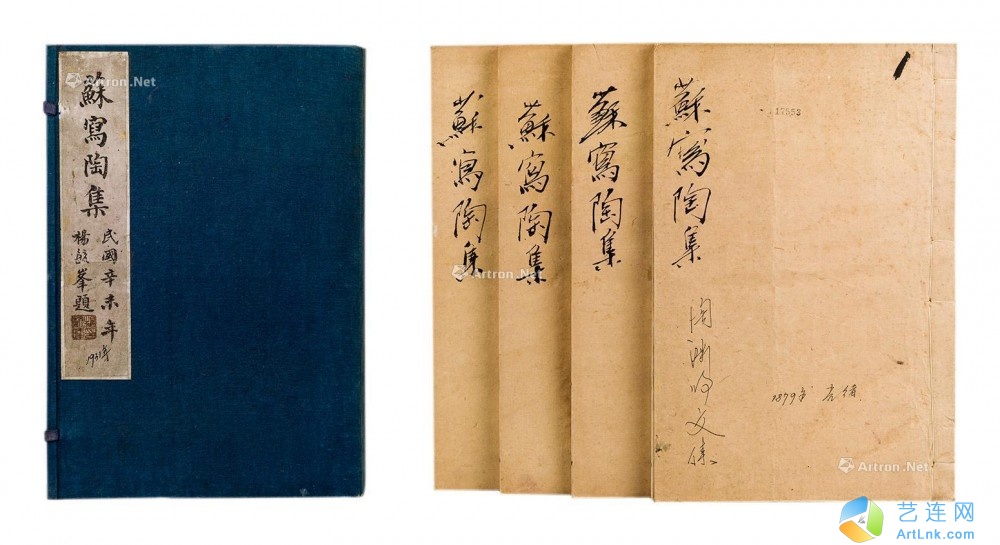 蘇寫陶集
民國辛未年
楊敏峯題
1931年
蘇寫陶集
蘇寫陶集
蘇寫陶集
蘇寫陶集
17553
陶渊明文集
1879年 光绪
Artron.Net
Artron.Net
Artron.Net
Artron.Net
艺连网
ArtLnk.com